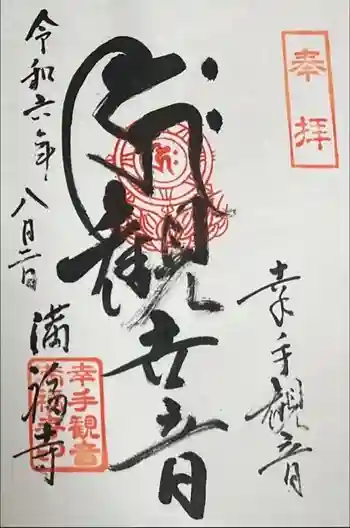 奉拝
幸手観音
観世音
令和六年八月二日
満福寺
幸手観音
満福寺印